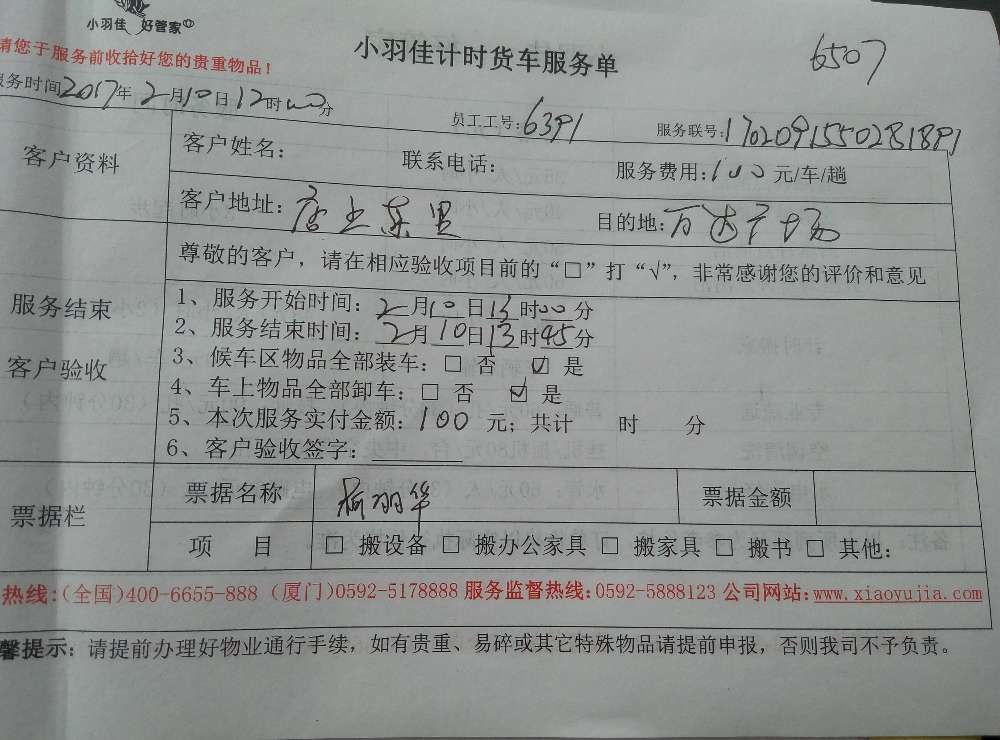 小羽佳 好管家
小羽佳计时货车服务单
6507
请您于服务前收拾好您的贵重物品！
服务时间2017年2月10日12时00分
员工工号：6391
服务联号：1702091550281891
客户资料
客户姓名： 联系电话： 服务费用：100元/车/趟
客户地址：店上东里 目的地：万达广场
尊敬的客户，请在相应验收项目前的“□”打“√”，非常感谢您的评价和意见
服务结束
客户验收
1、服务开始时间：2月10日13时00分
2、服务结束时间：2月10日13时45分
3、候车区物品全部装车：□ 否 ☑ 是
4、车上物品全部卸车：□ 否 ☑ 是
5、本次服务实付金额：100 元；共计 时 分
6、客户验收签字：
票据栏
票据名称 羽华 票据金额
项 目 □ 搬设备 □ 搬办公家具 □ 搬家具 □ 搬书 □ 其他：
热线：(全国)400-6655-888 (厦门)0592-5178888 服务监督热线：0592-5888123 公司网站：www.xiaoyujia.com
馨提示：请提前办理好物业通行手续，如有贵重、易碎或其它特殊物品请提前申报，否则我司不予负责。